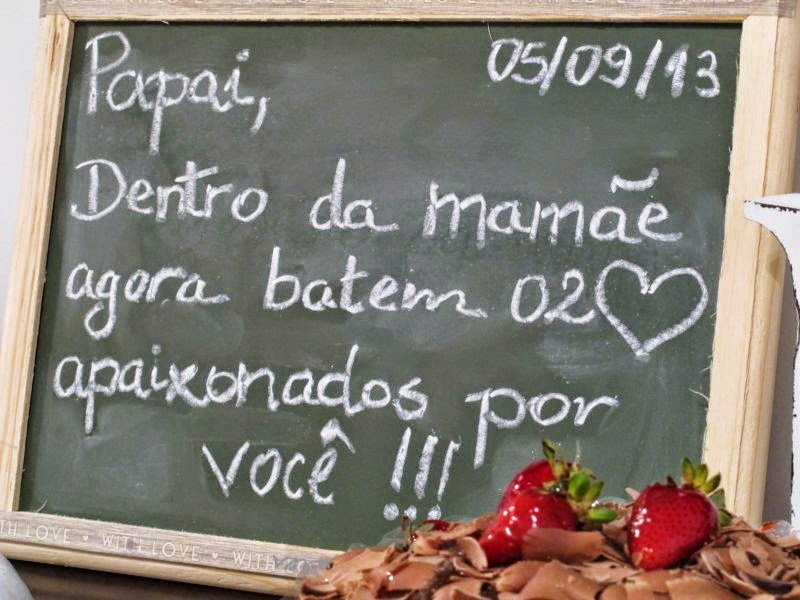 Papai, 05/09/13
Dentro da mamãe
agora batem 02♡
apaixonados por
você !!!
TH LOVE ♥ WITH LOVE ♥ WITH